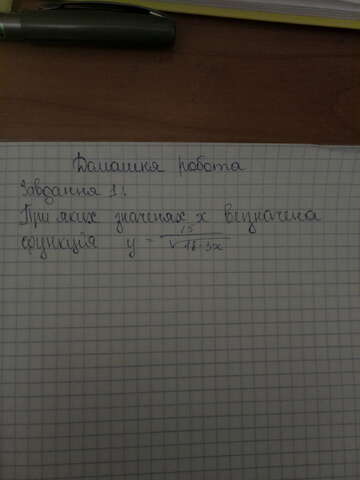 Домашня робота
Завдання 1.
При яких значенях x визначена
функція y = 15/√